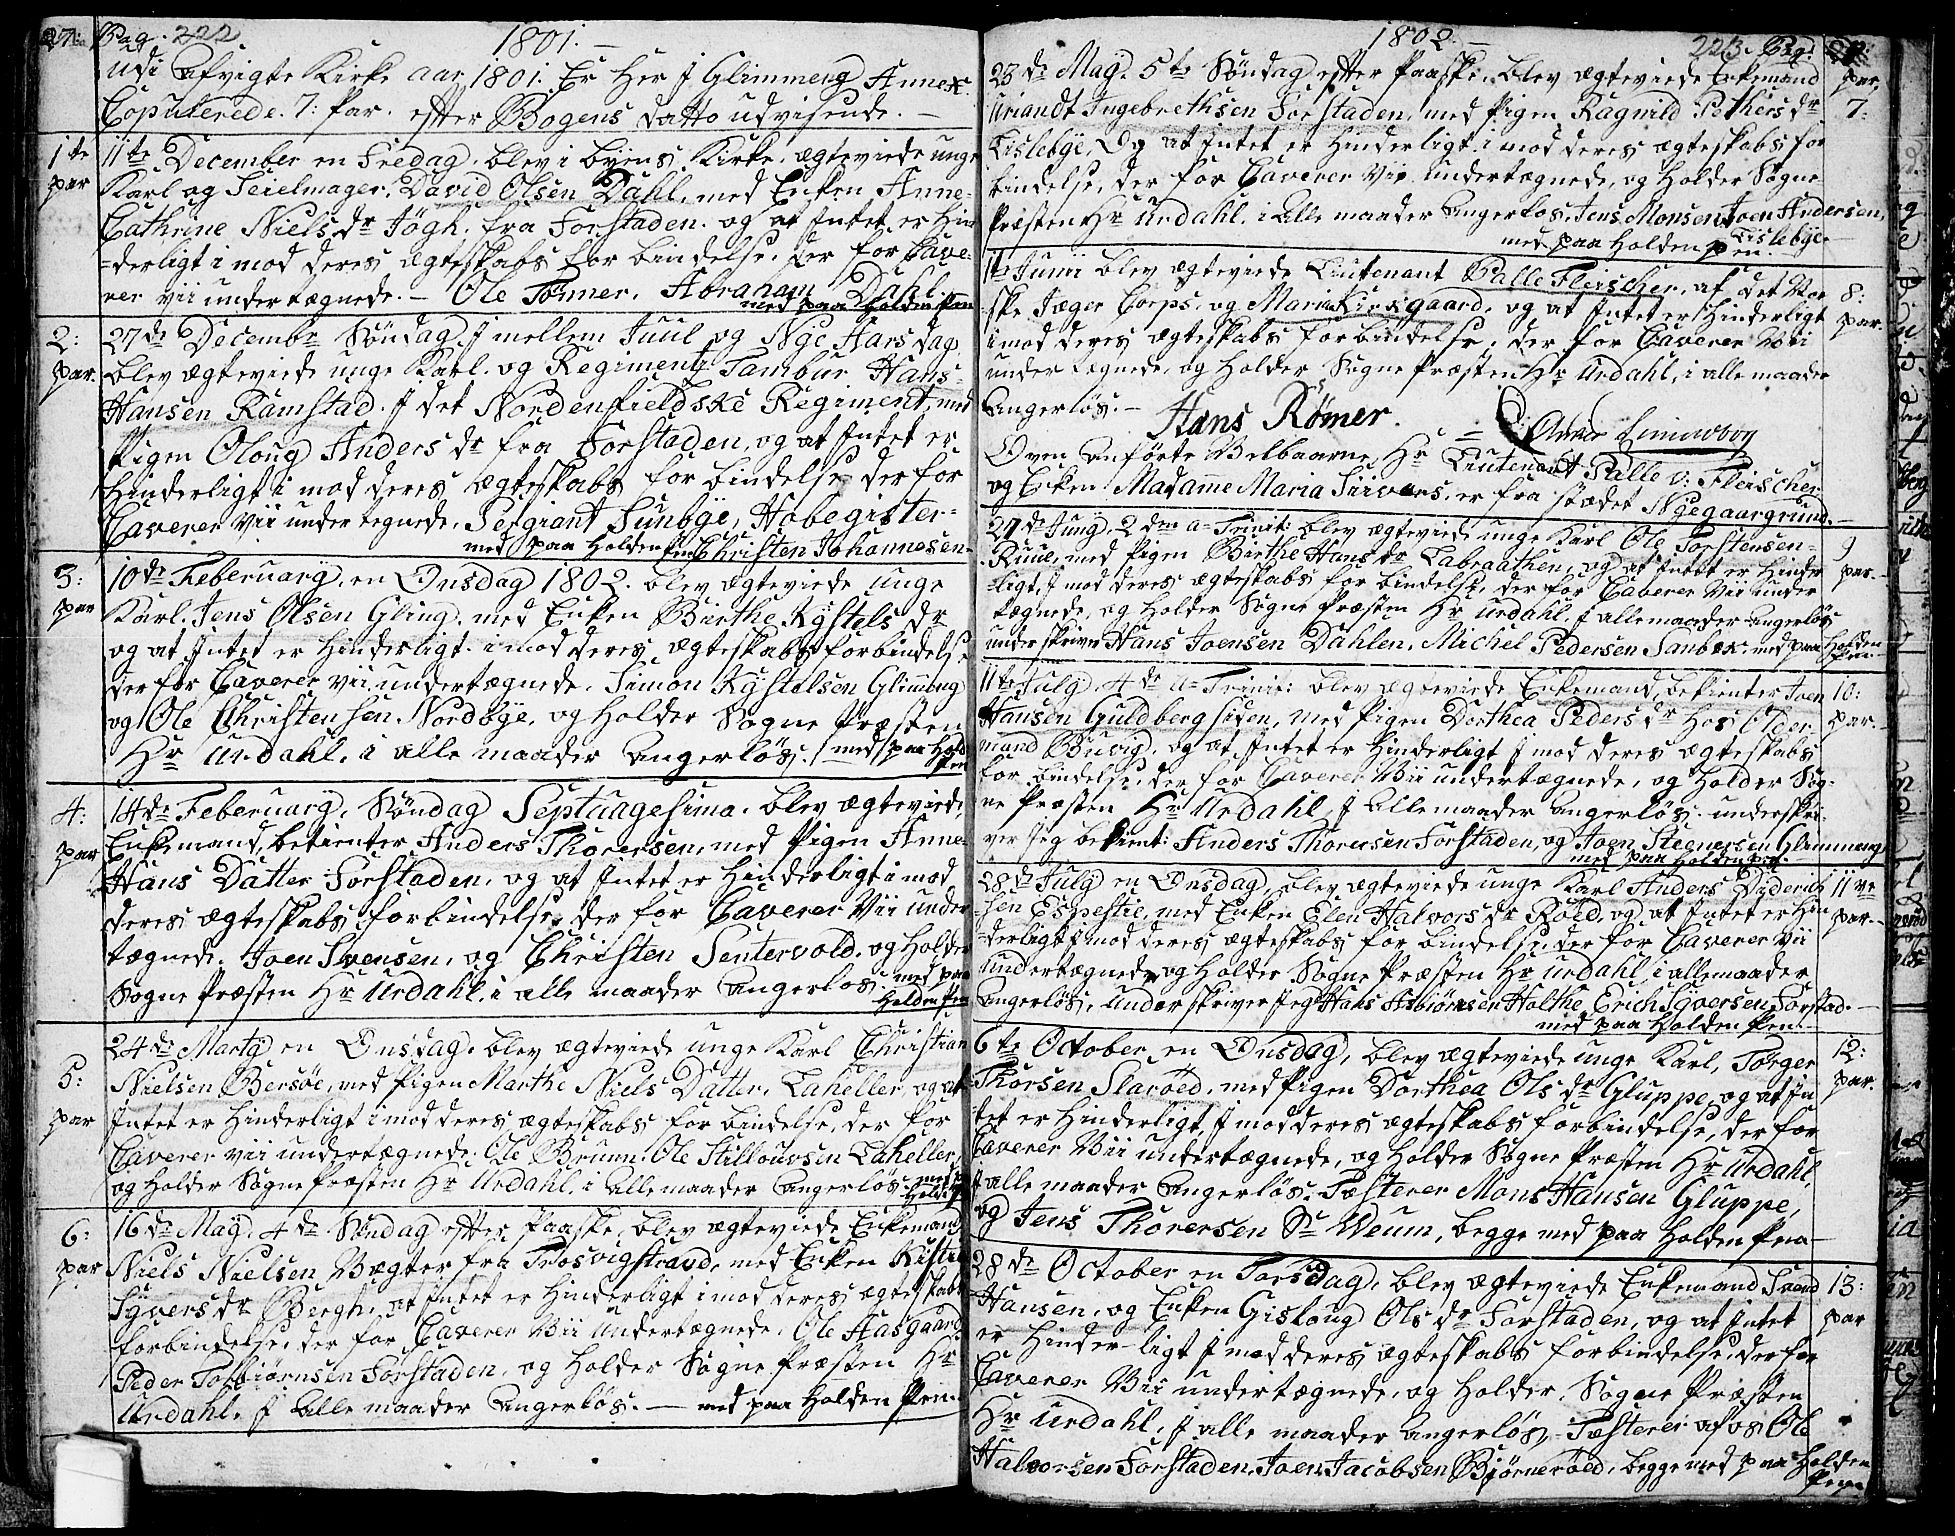 27: Pag. 222 1801. —
Udi Afvigte Kirke aar 1801. Er Her J Glimmeng Annex
Copulerede. 7: Par. efter Bogens datto udvisende. —
1te par
11te December en Fredag. blev i byens Kirke ægteviede unge
Karl og Seielmager. David Olsen Dahl, med Enken Anne
Cathrine Niels dr Jögh. fra Forstaden. og at Intet er Hin
=derligt i mod deres Ægteskabs for bindelse. der for Cave=
rer vii under tægnede. — Ole Tønner. Abraham Dahl.
med paa Holden Pen
2: par.
27de Decembr Søndag J mellem Juul og Nye Aars dag
blev ægteviede unge Karl. og Regimentz Tambur Hans=
Hansen Ramstad. J det Nordenfieldske Regiment, med
Pigen Oloug Anders dr fra Forstaden, og at Intet er
Hinderligt i mod deres Ægteskabs for bindelse der for
Caverer vii under tegnede. Sergiant Sunbye, Hobegister=
med paa Holden Pen Christen Johannesen
3: par
10de Februarÿ. en Onsdag 1802. blev ægteviede unge
Karl. Jens Olsen Gling. med Enken Birthe Kystels dr
og at Intet er Hinderligt. i mod deres Ægteskabs forbindelse
der for Caverer vii undertægnede. Simon Kystelsen Glimmeng
og Ole Christensen Nordbye, og Holder Sogne Præsten
Hr Urdahl. i alle maader Angerløs. / med paa Hold
Pen
4: par
14de Februarÿ. Søndag Septuagesima. blev ægteviede,
Enkemand, bekienter Anders Thorersen, med Pigen Anne
Hans Datter Forstaden. og at Intet er Hinderligt i mod
deres ægteskabs forbindelse. der for Caverer Vii under
tægnede. Joen Svensen, og Christen Sentervold. og Holder
Sogne Præsten Hr Urdahl. i alle maader Angerløs. med paa
Holden Pen
5: par
24de Martÿ en Onsdag. blev ægteviede unge Karl Christian
Nielsen Bersøe, med Pigen Marthe Niels Datter. Laheller, og at
Intet er Hinderligt i mod deres ægteskabs for bindelse, der for
Caverer vii undertægnede. Ole Bruun. Ole Stillouvsen Laheller,
og Holder Sogne Præsten Hr Urdahl. i alle maader Angerløs. med p
Hold P
6: par
16de Maÿ. 4de Søndag efter Paaske, blev ægteviede Enkemand
Niels Nielsen Vægter fra Trosvigstrand, med Enken Kisti
Syvers dr Bergh. at Intet er Hinderligt i mod deres ægteskabs
forbindelse, der for Caverer Vii undertægnede. Ole Aasgaard
Peder Torbiørnsen Forstaden, og Holder Sogne Præsten Hr
Urdahl. J alle maader Angerløs. — med paa Holden Pen.
1802. — 223 Pag:
23de Maÿ. 5te Søndag efter Paaske. blev ægteviede Enkemand
Uriandt Ingebrethsen Forstaden, med Pigen Ragnild Pethers dr
Lislebye, Og at Intet er Hinderligt. i mod deres ægteskabs for
bindelse, der for Caverer Vii undertægnede, og Holder Sogne
Præsten Hr Urdahl. i alle maader Angerløs. Jens Monsen Joen Andersen,
med paa Holden Pen. Lislebye.
par. 7:
1te Junii blev ægteviede Lieutenant Palle Fleischer, af det Nor
ske Jæger Corps, og Maria Kirkgaard, og at Intet er Hinderligt
i mod deres ægteskabs forbindelse. der for Caverer Vii
under tægnede, og Holder Sogne Præsten Hr Urdahl, i alle maader
Angerløs. — Hans Rømer.
8: par.
Oven anførte Velbaarne, Hr Lieutenant Palle v: Fleischer
og Enken Madame Maria Siivers, er fra stædet Nyegaargrund. —
27de Junÿ. 2den a= Trinit: blev ægteviede unge Karl Ole Torstensen=
Ruue, med Pigen Birthe Hans dr Labraathen, og at Intet er Hinder
=ligt, J mod deres ægteskabs for bindelse, der for Caverer Vii under
tægnede, og Holder Sogne Præsten Hr Urdahl. J alle maader Angerløs
underskriver Hans Joensen Dahlen, Michel Pedersen Sanbæk, med paa Holden
Pen.
9 par.
11te Julÿ. 4de a= Trinit: blev ægteviede Enkemand, bekienter Joen
Hansen Guldbergsiden, med Pigen Dorthea Peders dr hos Older
mand Buvig. og at Intet er Hinderligt J mod deres ægteskabs
for bindelse, der for Caverer Vii undertægnede, og Holder Sog-
ne Præsten Hr Urdahl. J alle maader Angerløs. underskri-
ver Jeg bekient: Anders Thoresen Forstaden, og Joen Steenersen Glemmeng
med paa Holden Pen.
10: par.
28de Julÿ en Onsdag, blev ægteviede unge Karl Anders Dyderich
=sen Espestie, med Enken Elen Halvors dr Roed, og at Intet er Hin
=derligt J mod deres ægteskabs for bindelse. der for Caverer vii
undertægnede, og Holder Sogne Præsten Hr Urdahl, i alle maader
Angerløs, underskriver Jeg Hans Asbiørnsen Holthe, Erich Syversen Forstad. —
med paa Holden Pen.
11ve par.
6te October, en Onsdag, blev ægteviede unge Karl, Torger
Thorsen Slaroed, med Pigen Dorthea Ols dr Gluppe, og at In
=tet er Hinderligt, J mod deres ægteskabs forbindelse, der for
Caverer Vii undertægnede, og Holder Sogne Præsten Hr Urdahl,
J alle maader Angerløs. Tæsterer Mons Hansen Gluppe,
og Jens Thorersen Sr Veum, begge med paa Holden Pen—
12: par.
28de October en Torsdag, blev ægteviede Enkemand Svend
Hansen, og Enken Giskoug Ols dr Forstaden, og at Intet
er Hinder-ligt J mod deres ægteskabs forbindelse, der for
Caverer Vii undertægnede, og Holder Sogne Præsten
Hr Urdahl, J alle maader Angerløs,- Tæsterer af os Ole
Halvorsen Forstaden. Joen Jacobsen Bjørnerøed, begge med paa Holden
Pen.
13: par